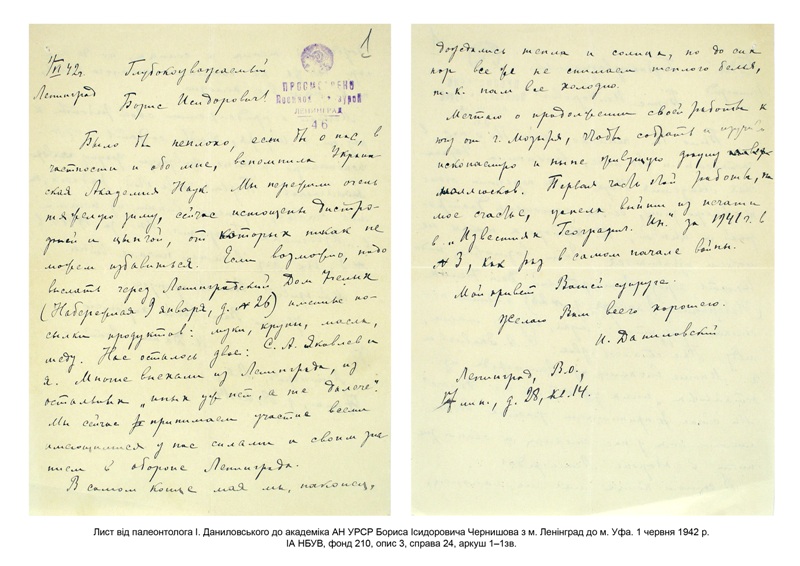 1
1/VI 42 г.
Ленинград
Глубокоуважаемый
Борис Исидорович!
ПРОСМОТРЕНО
Военной Цензурой
ЛЕНИНГРАД
46
Было бы неплохо, если бы о нас, в
частности и обо мне, вспомнила Украин-
ская Академия Наук. Мы пережили очень
тяжелую зиму, сейчас истощены дистро-
фией и цынгой, от которых никак не
можем избавиться. Если возможно, надо
выслать через Ленинградский Дом Ученых
(Набережная 9 января, д. № 26) именные по-
сылки продуктов: муки, крупы, масла,
меду. Нас осталось двое: С. А. Яковлев и
я. Многие выехали из Ленинграда, из
остальных „иных уж нет, а те далече".
Мы сейчас принимаем участие всеми
имеющимися у нас силами и своим зна-
нием в обороне Ленинграда.
В самом конце мая мы, наконец,
дождались тепла и солнца, но до сих
пор все же не снимаем теплого белья,
т.к. нам все холодно.
Мечтаю о продолжении своей работы к
югу от г. Мозыря, чтобы собрать и
ископаемую и ныне живущую фауну
моллюсков. Первая часть этой работы, на
мое счастье, успела выйти из печати
в „Известиях Географич. " за 1941 г. в
№ 3, как раз в самом начале войны.
Мой привет Вашей супруге.
Желаю Вам всего хорошего.
И. Даниловский
Ленинград, В.О.,
лин., д. 28, кв. 14.
Лист від палеонтолога І. Даниловського до академіка АН УРСР Бориса Ісидоровича Чернишова з м. Ленінград до м. Уфа. 1 червня 1942 р.
ІА НБУВ, фонд 210, опис 3, справа 24, аркуш 1–1зв.